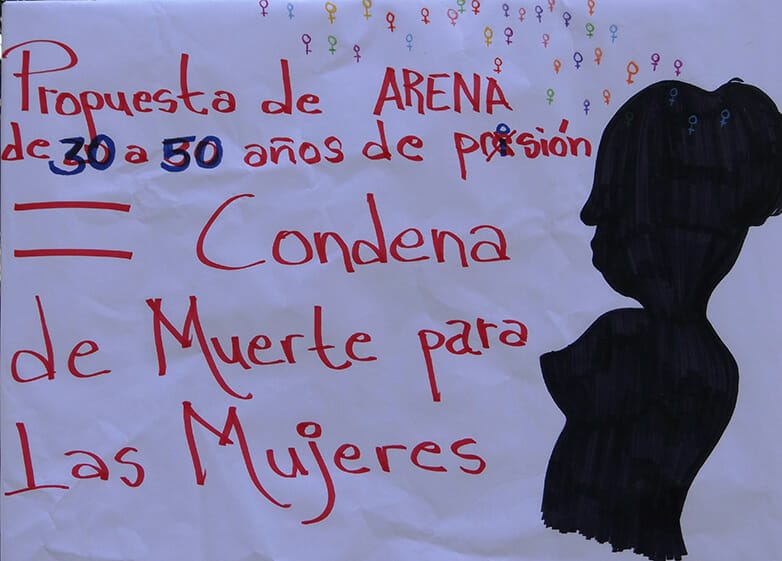 Propuesta de ARENA
de 30 a 50 años de prisión
= Condena
de Muerte para
Las Mujeres